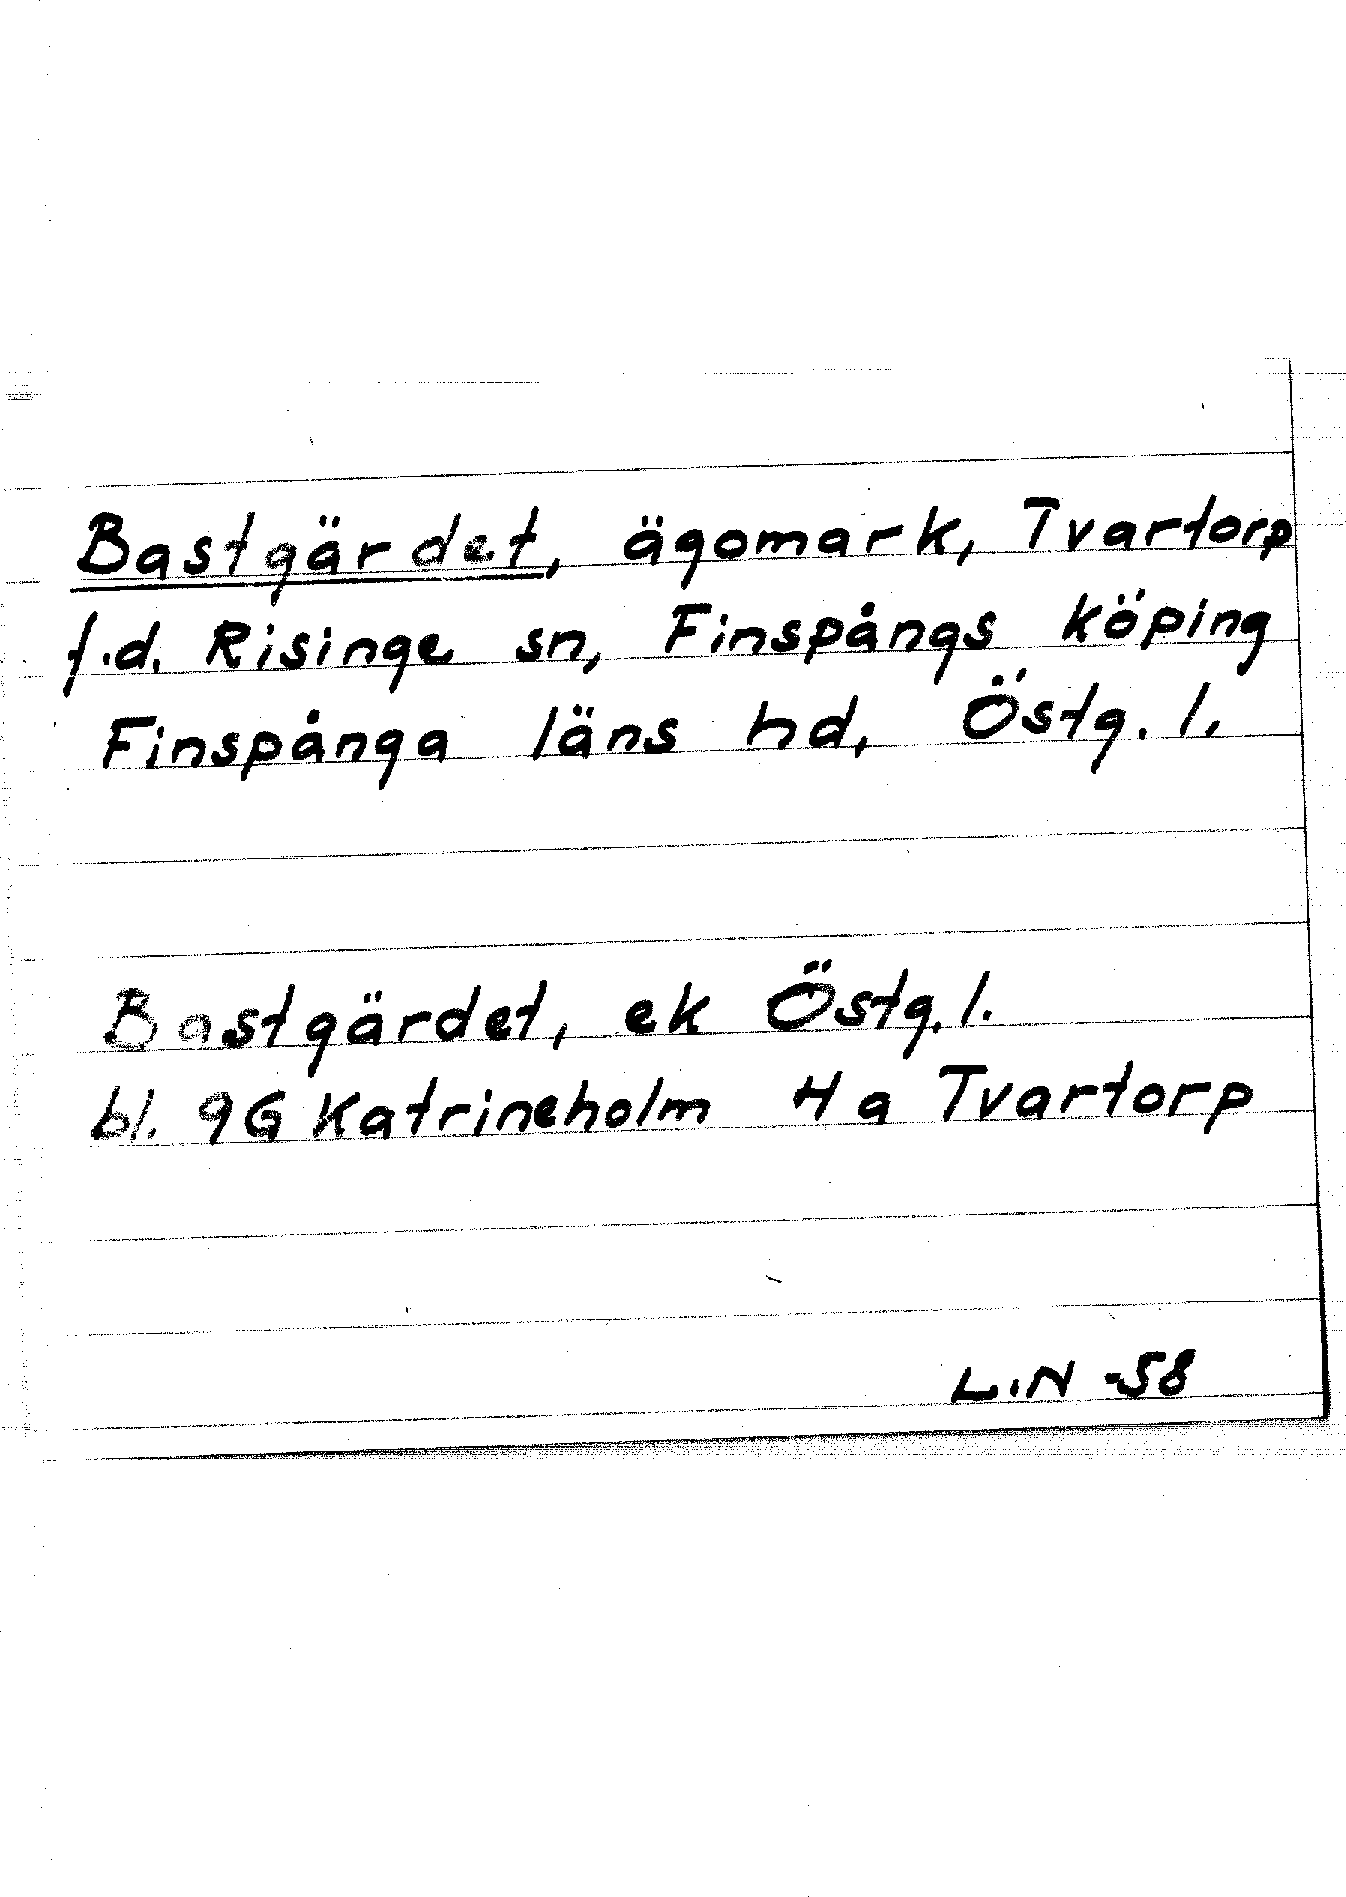 Bastgärdet, ägomark, Tvartorp
f.d. Risinge sn, Finspångs köping
Finspånga läns hd, Östg. l.
Bastgärdet, ek Östg. l.
bl. 9G Katrineholm 4a Tvartorp
L.N -58